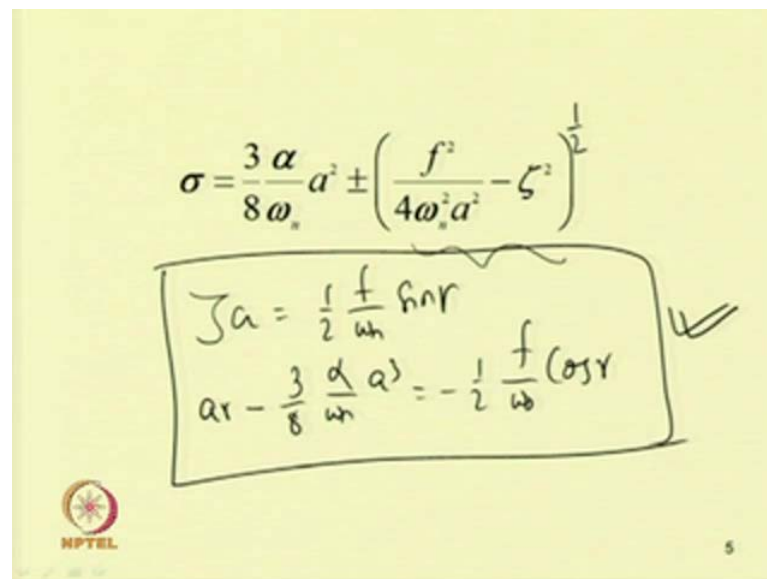 σ = 3/8 α/ωₙ a² ± (f²/4ωₙ²a² − ζ²)^1/2
ζa = 1/2 f/ωn sinγ
aγ − 3/8 α/ωn a³ = − 1/2 f/ω0 cosγ
NPTEL
5